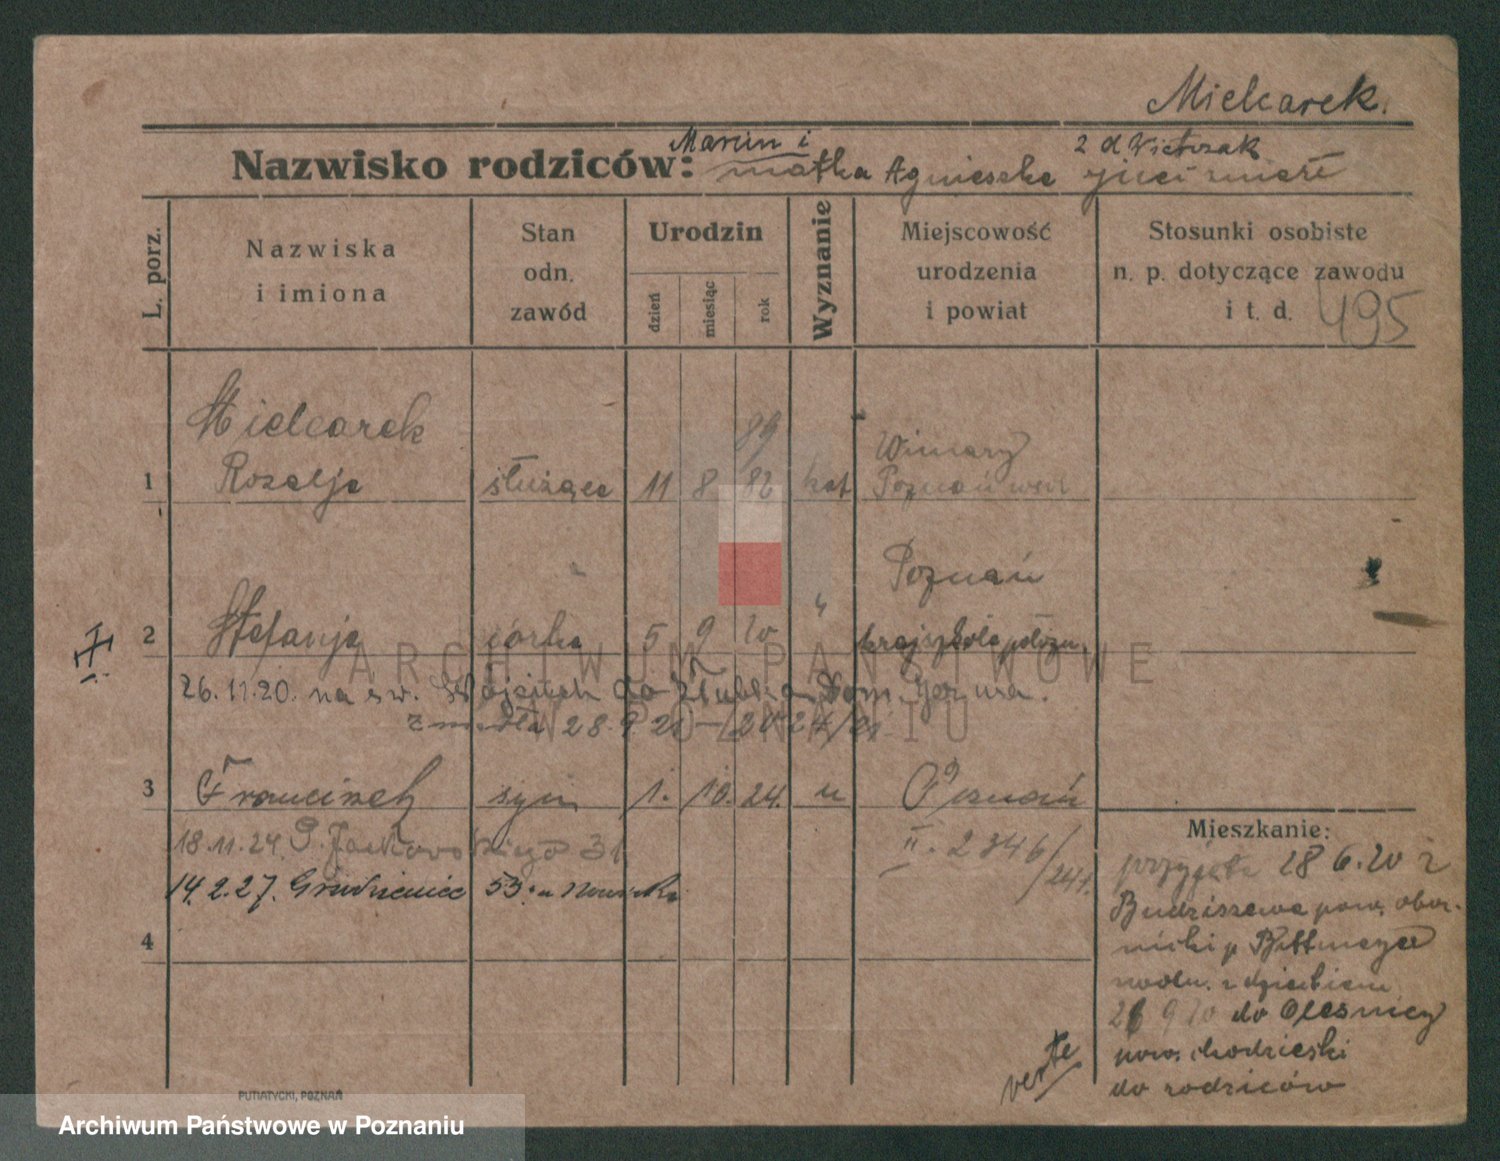 Mielcarek.
Marcin i 2 d Wietrzak
Nazwisko rodziców: matka Agnieszka ojciec zmarł
L. porz.
Nazwiska i imiona
Stan odn. zawód
Urodzin
dzień miesiąc rok
Wyznanie
Miejscowość urodzenia i powiat
Stosunki osobiste n. p. dotyczące zawodu i t. d.
495
Mielcarek 89 Winiary
1 Rozalja służąca 11 8 82 kat Poznań wsch
Poznań
2 Stefanja córka 5 9 20 " kraj. szkoła położn.
26.11.20. na św. Wojciech do żłóbka Dom. Jezusa.
zmarła 28.9 21 — 2024/21
3 Franciszek syn 1. 10. 24. " Poznań
18.11.24. P. Jackowskiego 31 II. 2346/241.
14.2.27. Grudzieniec 53.
4
Mieszkanie:
przyjęta 28 6. 20 z
Budziszewa pow. obor-
nicki p
z dzieckiem
26 9 20 do Oleśnicy
pow. chodzieski
do rodziców
verte
PUTIATYCKI, POZNAŃ
ARCHIWUM PAŃSTWOWE
W POZNANIU
Archiwum Państwowe w Poznaniu